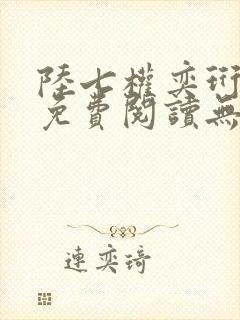 陸七權奕珩
免費閱讀無
連奕琦